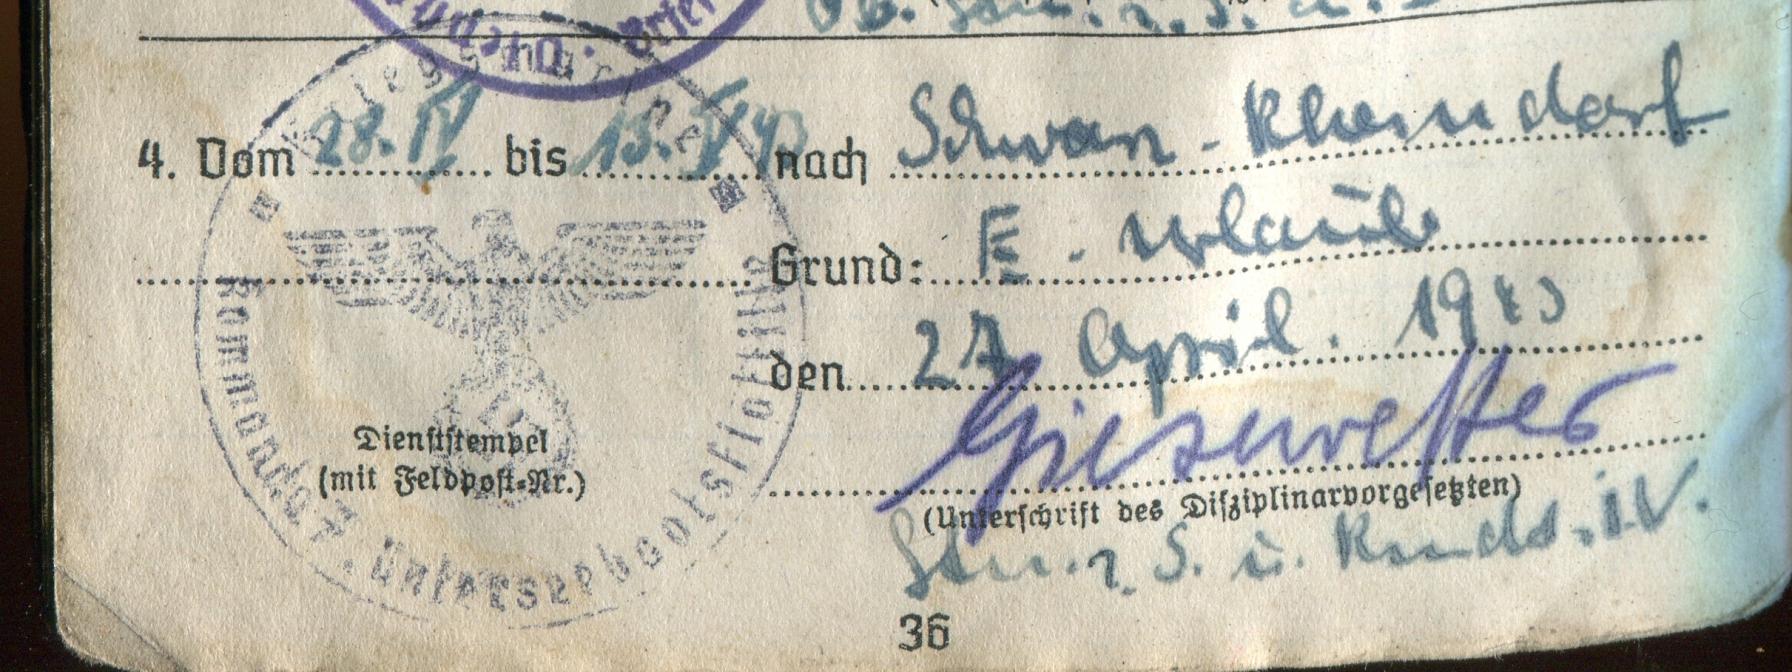 4. Vom 28. IV bis 15. V 43 nach Schwarz-Rheindorf
Grund: E.-Urlaub
den 27 April. 1943
Giesewetter
Dienststempel
(mit Feldpost-Nr.)
(Unterschrift des Disziplinarvorgesetzten)
i. V.
36
Kriegsmarine
Kommando 7. Unterseebootsflottille